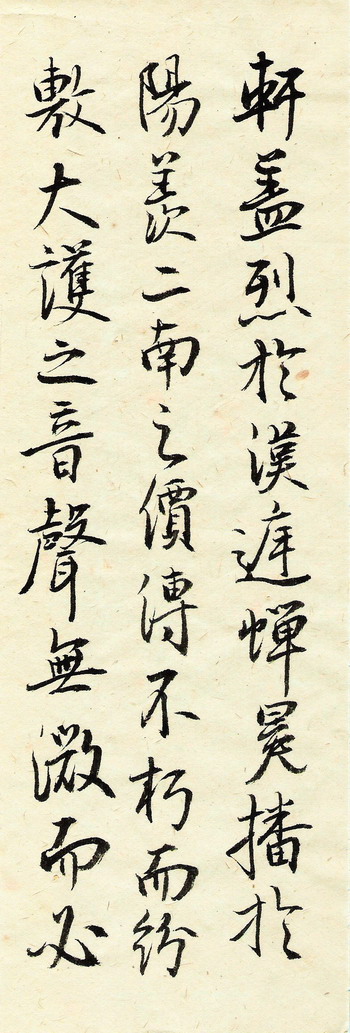 軒蓋烈於漢遲蟬冕播於
陽羨二南之價傳不朽而紛
敷大護之音聲無微而必